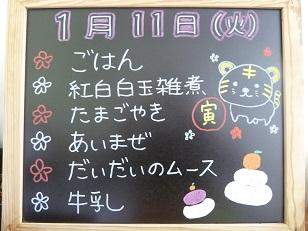 1月11日(火)
ごはん
紅白白玉雑煮、
たまごやき
あいまぜ
だいだいのムース
牛乳し
寅